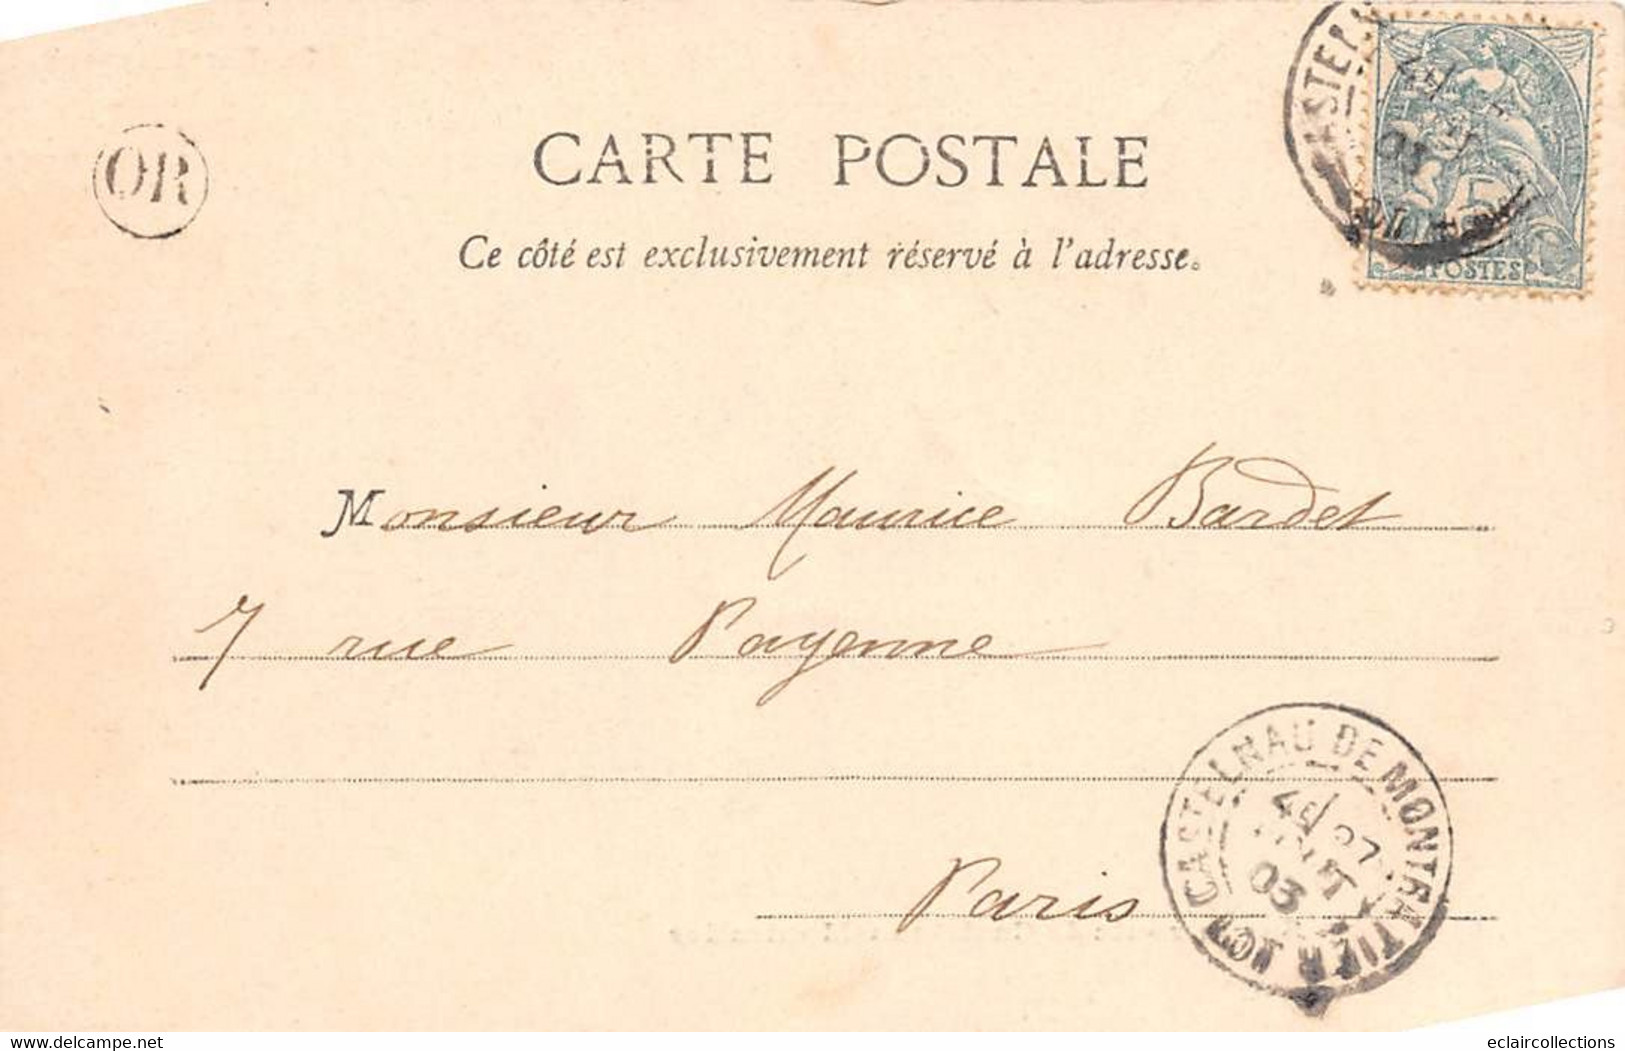 OR
CARTE POSTALE
Ce côté est exclusivement réservé à l'adresse.
POSTES
Monsieur Maurice Bardet
7 rue Payenne
Paris
CASTELNAU DE MONTRATIER
4E/ 27
03
LOT
www.delcampe.net
eclaircollections